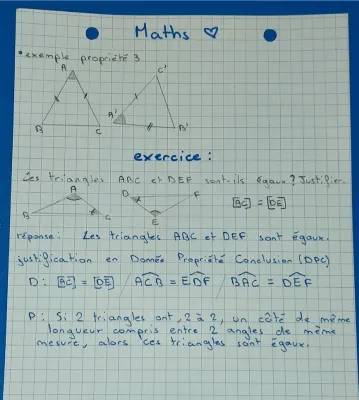 Maths ♡
• exemple propriété 3
A
C'
A'
B
C
B'
exercice :
Les triangles ABC et DEF sont-ils égaux ? Justifier.
A
D
F
[BC] = [DE]
B
C
E
réponse : Les triangles ABC et DEF sont égaux.
justification en Donnée Propriété Conclusion (DPC)
D : [BC] = [DE] / ACB = EDF / BAC = DEF
P : Si 2 triangles ont, 2 à 2, un côté de même
longueur compris entre 2 angles de même
mesure, alors ces triangles sont égaux.